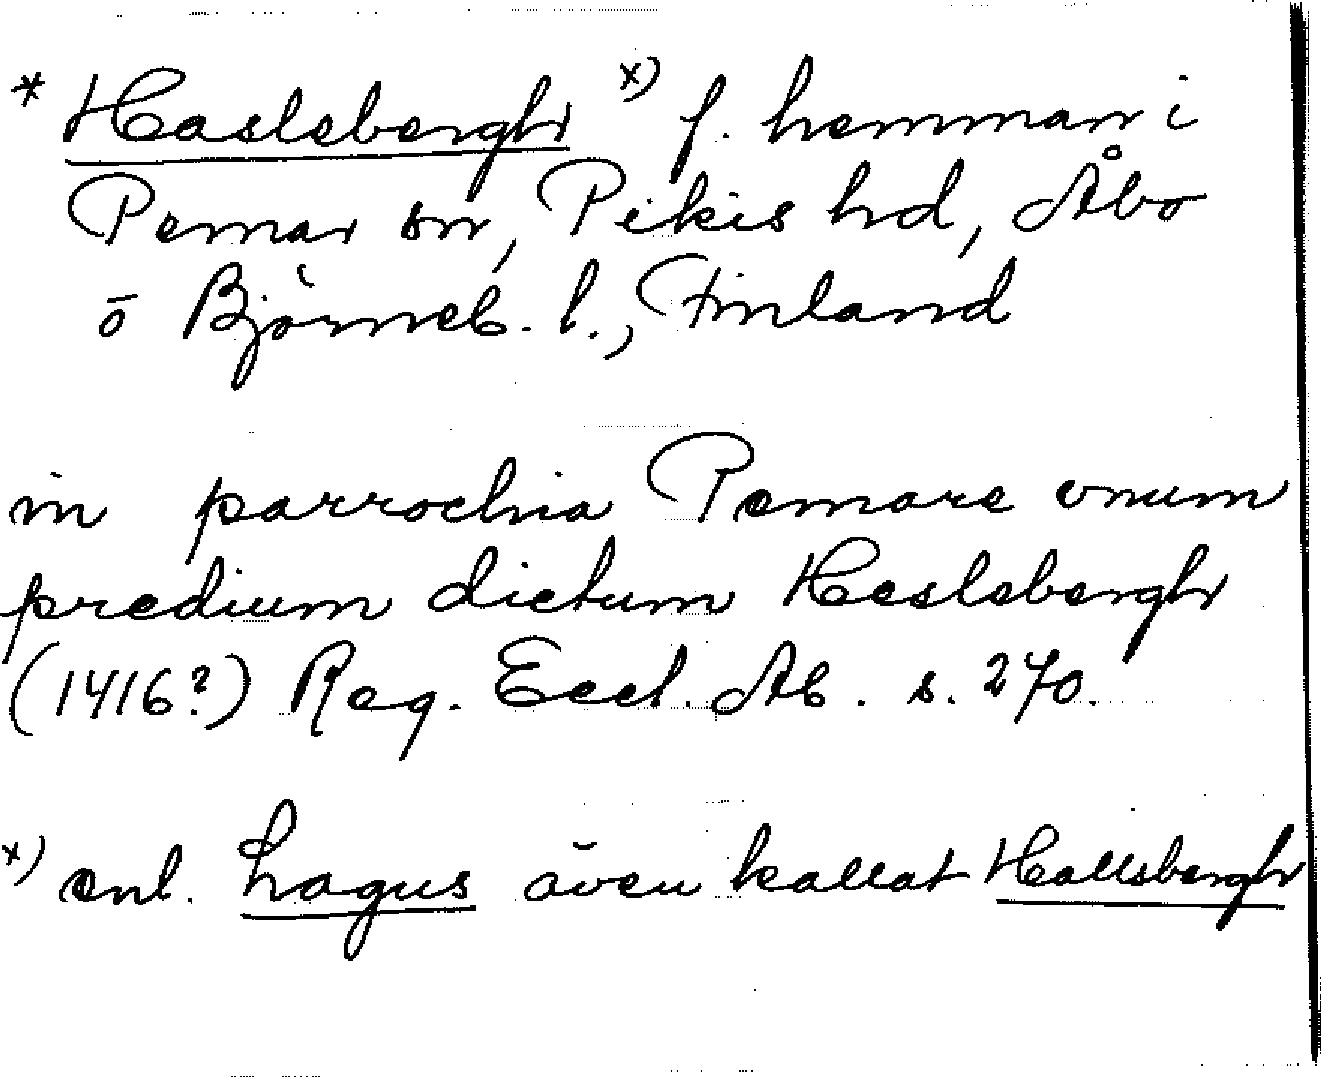 * Haslebergh x) f. hemman i
Pemar sn, Pikis hd, Åbo
o Björneb. l., Finland
in parrochia Pemare vnum
predium dictum Heslebergh
(1416?) Reg. Eccl. Ab. s. 270.
x) enl. Lagus även kallat Hallsbergh